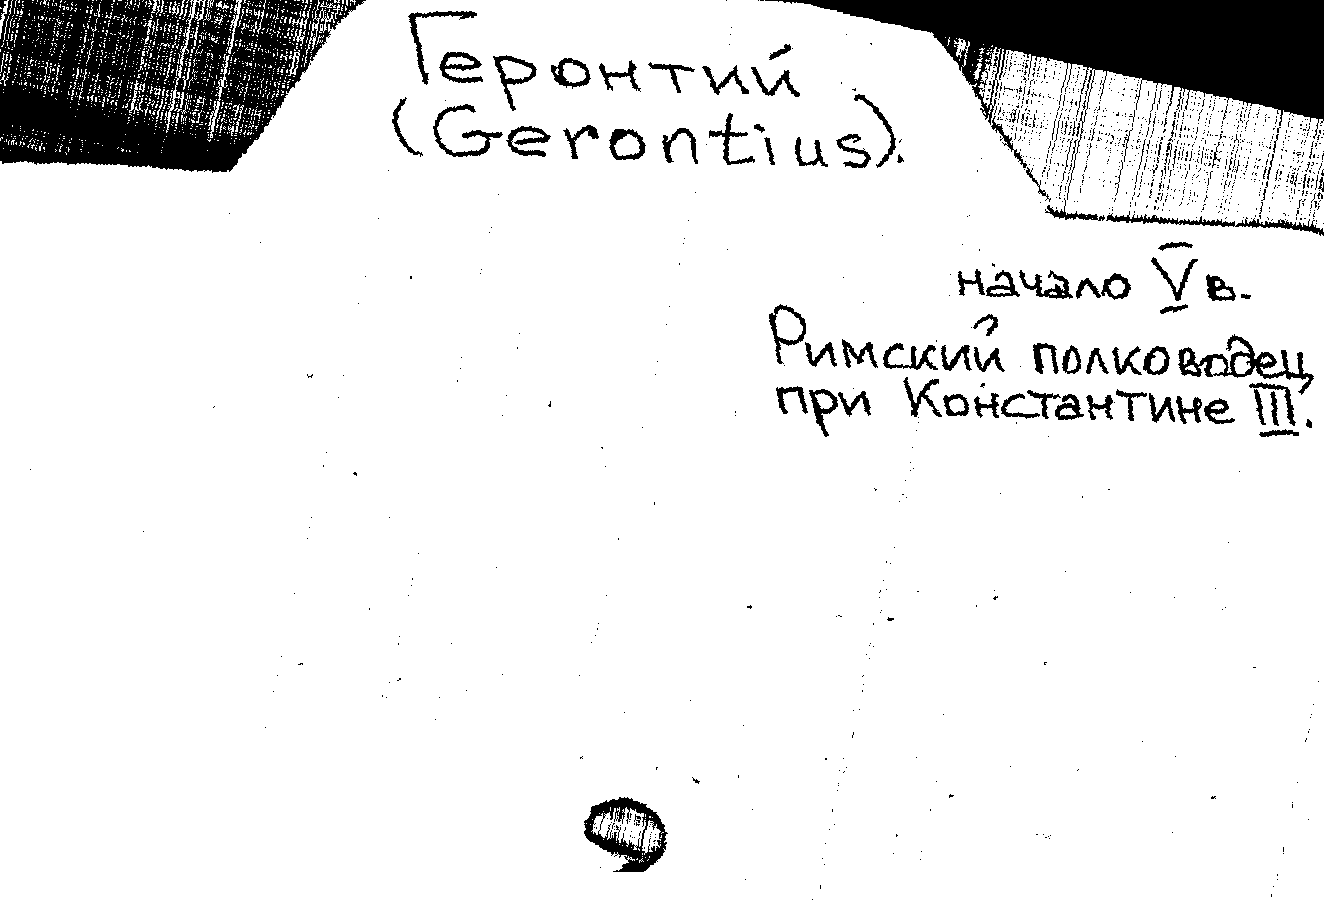 Геронтий
(Gerontius).
начало V в.
Римский полководец,
при Константине III.